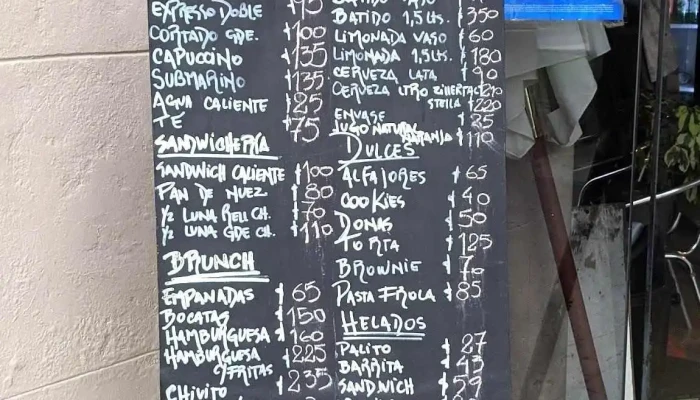 EXPRESO DOBLE
CORTADO GDE. $100
CAPUCCINO $135
SUBMARINO $135
AGUA CALIENTE $25
TE $75
SANDWICHERIA
SANDWICH CALIENTE $100
PAN DE NUEZ $80
1/2 LUNA RELL CH. $70
1/2 LUNA GDE CH. $110
BRUNCH
EMPANADAS $65
BOCATAS $150
HAMBURGUESA $160
HAMBURGUESA $225
C/FRITAS
CHIVITO $235
BATIDO 1,5 LTS. $350
LIMONADA VASO $60
LIMONADA 1,5 LTS. $180
CERVEZA LATA $90
CERVEZA LITRO ZILLERTAL $210
STELLA $220
ENVASE $25
JUGO NATURAL NARANJA $110
DULCES
ALFAJORES $65
COOKIES $40
DONAS $50
TORTA $125
BROWNIE $70
PASTA FROLA $85
HELADOS
PALITO $27
BARRITA $43
SANDWICH $59